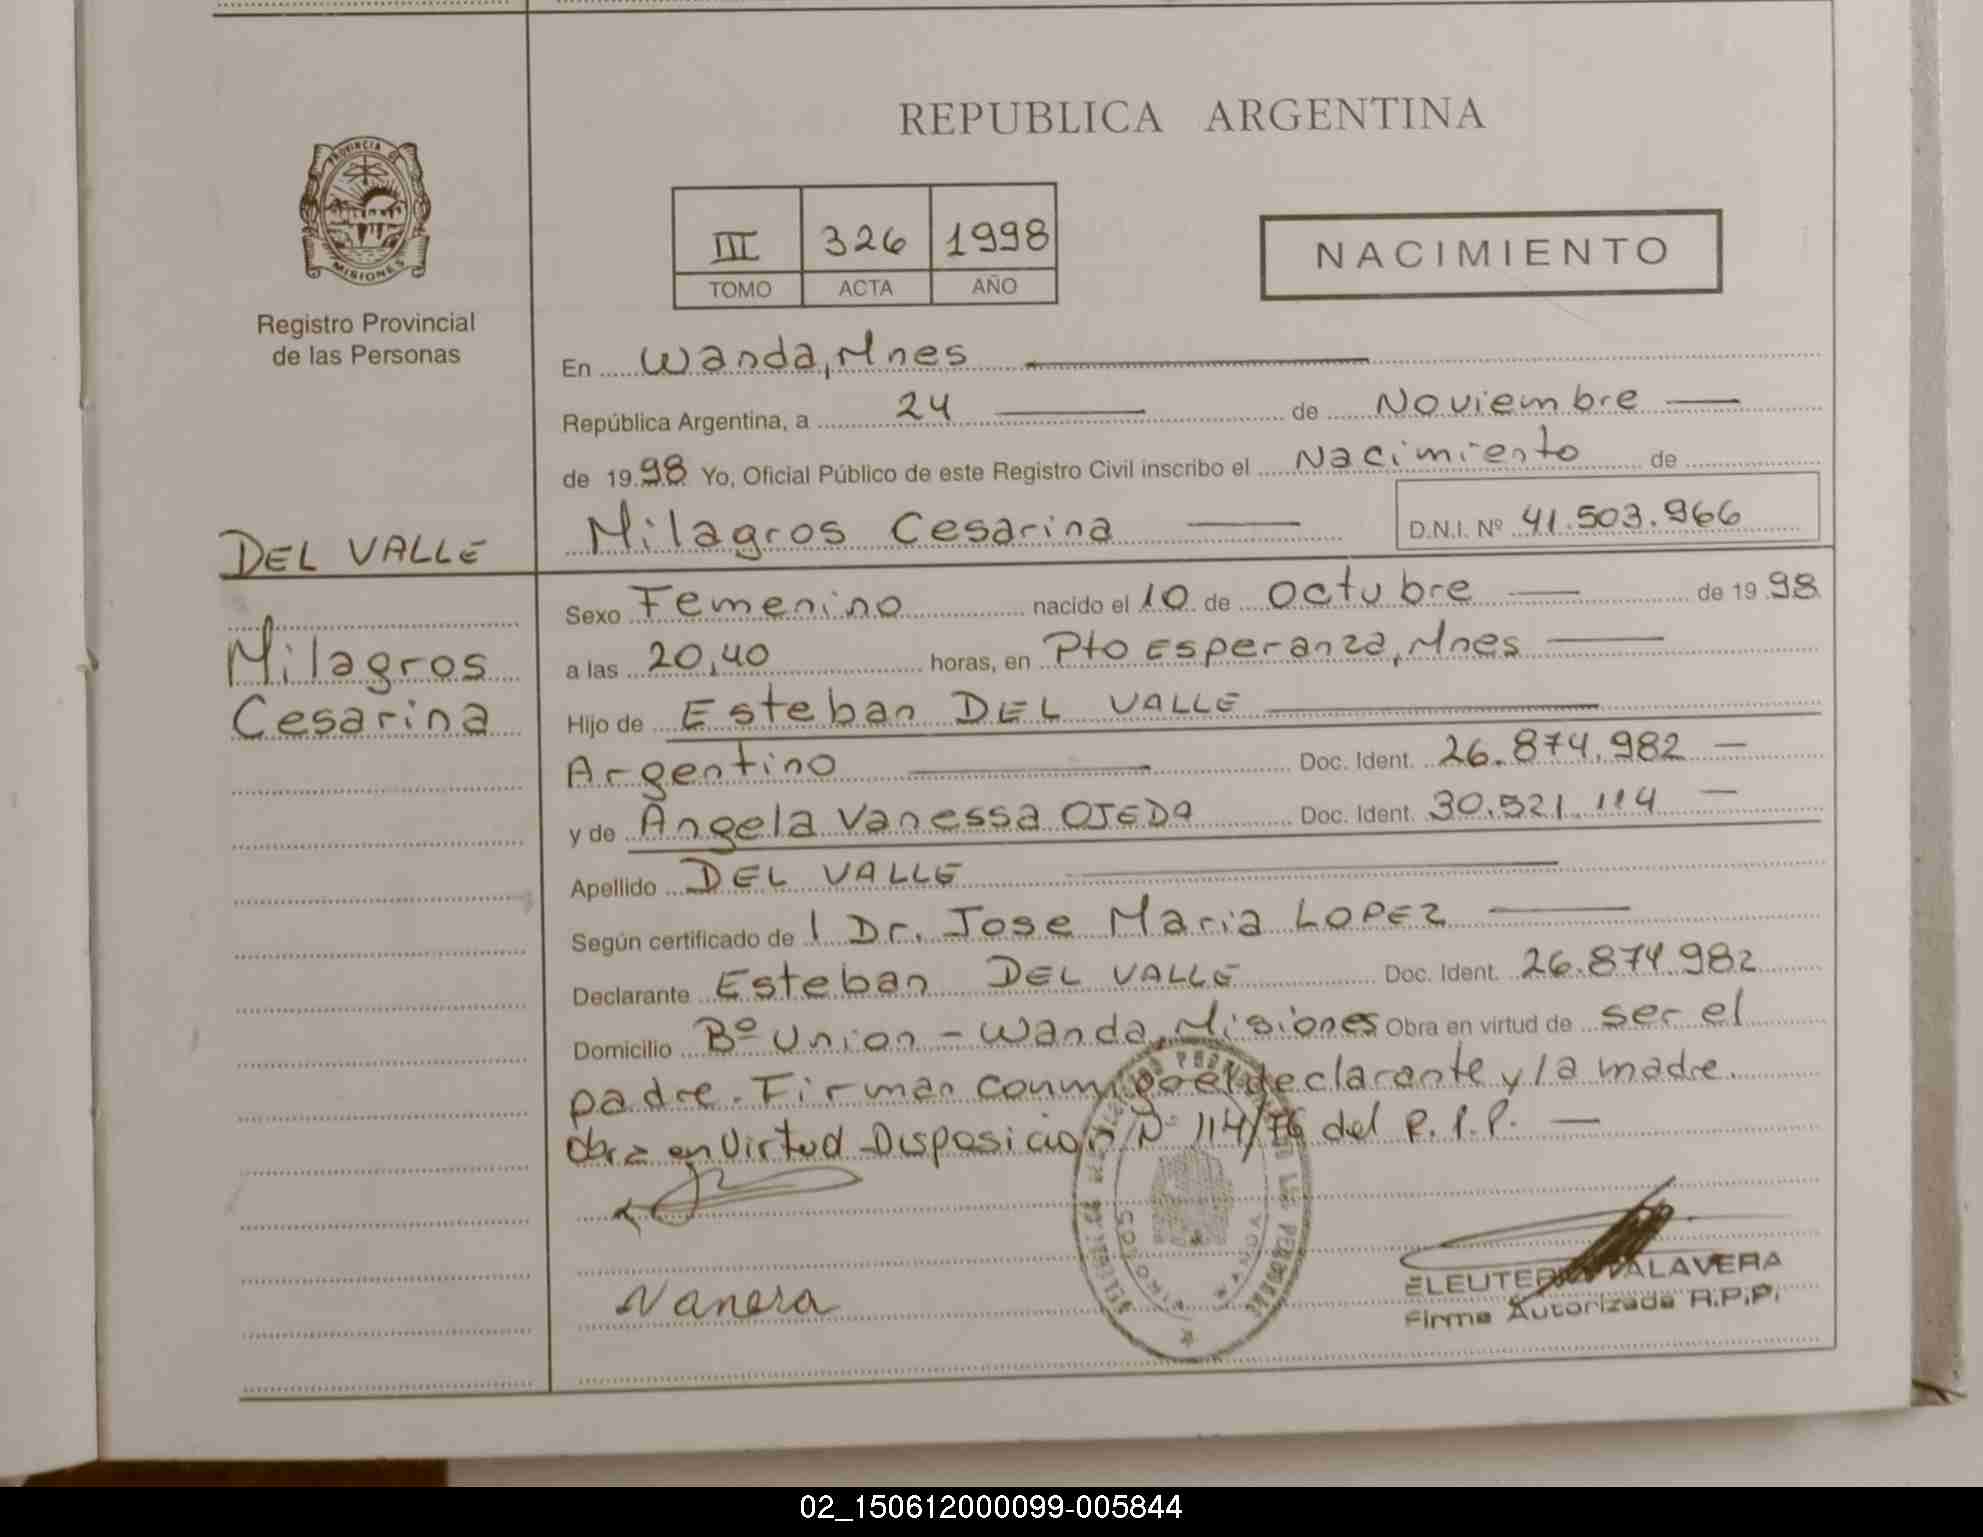 REPUBLICA ARGENTINA
PROVINCIA DE MISIONES
Registro Provincial
de las Personas
III 326 1998
TOMO ACTA AÑO
NACIMIENTO
En Wanda, Mnes
República Argentina, a 24 de Noviembre
de 1998 Yo, Oficial Público de este Registro Civil inscribo el Nacimiento de
Milagros Cesarina D.N.I. Nº 41.503.966
DEL VALLE
Milagros
Cesarina
Sexo Femenino nacido el 10 de Octubre de 1998
a las 20,40 horas, en Pto Esperanza, Mnes
Hijo de Esteban DEL VALLE
Argentino Doc. Ident. 26.874.982
y de Angela Vanessa OJEDA Doc. Ident. 30.521.114
Apellido DEL VALLE
Según certificado de l Dr. Jose Maria LOPEZ
Declarante Esteban DEL VALLE Doc. Ident. 26.874.982
Domicilio Bº Union - Wanda, Misiones Obra en virtud de ser el
padre. Firman conmigo el declarante y la madre.
Obra en Virtud Disposicion Nº 114/76 del R.P.P.
WANDA
ELEUTERIO TALAVERA
Firma Autorizada R.P.P.
02_150612000099-005844